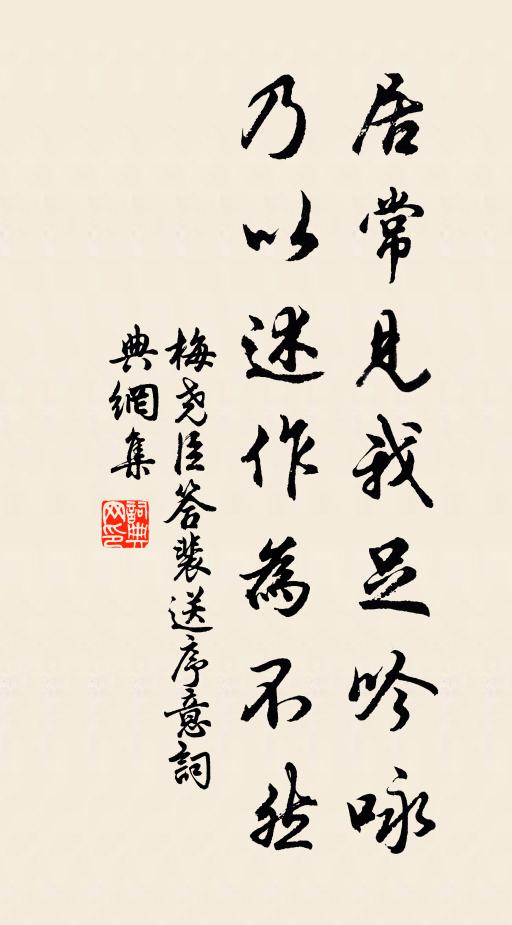 居常見我足吟咏
乃以述作為不然
梅堯臣答裴送序意詞
典網集
詞典网印